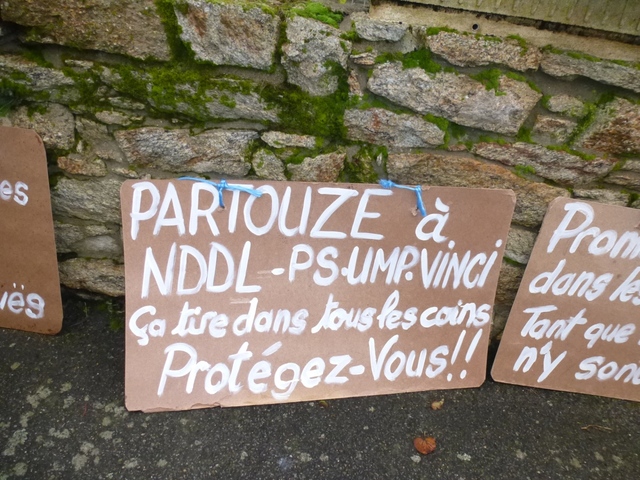 es
uës
PARTOUZE à
NDDL-PS.UMP.VINCI
Ça tire dans tous les coins
Protégez-Vous!!
dans les
Tant que
n'y